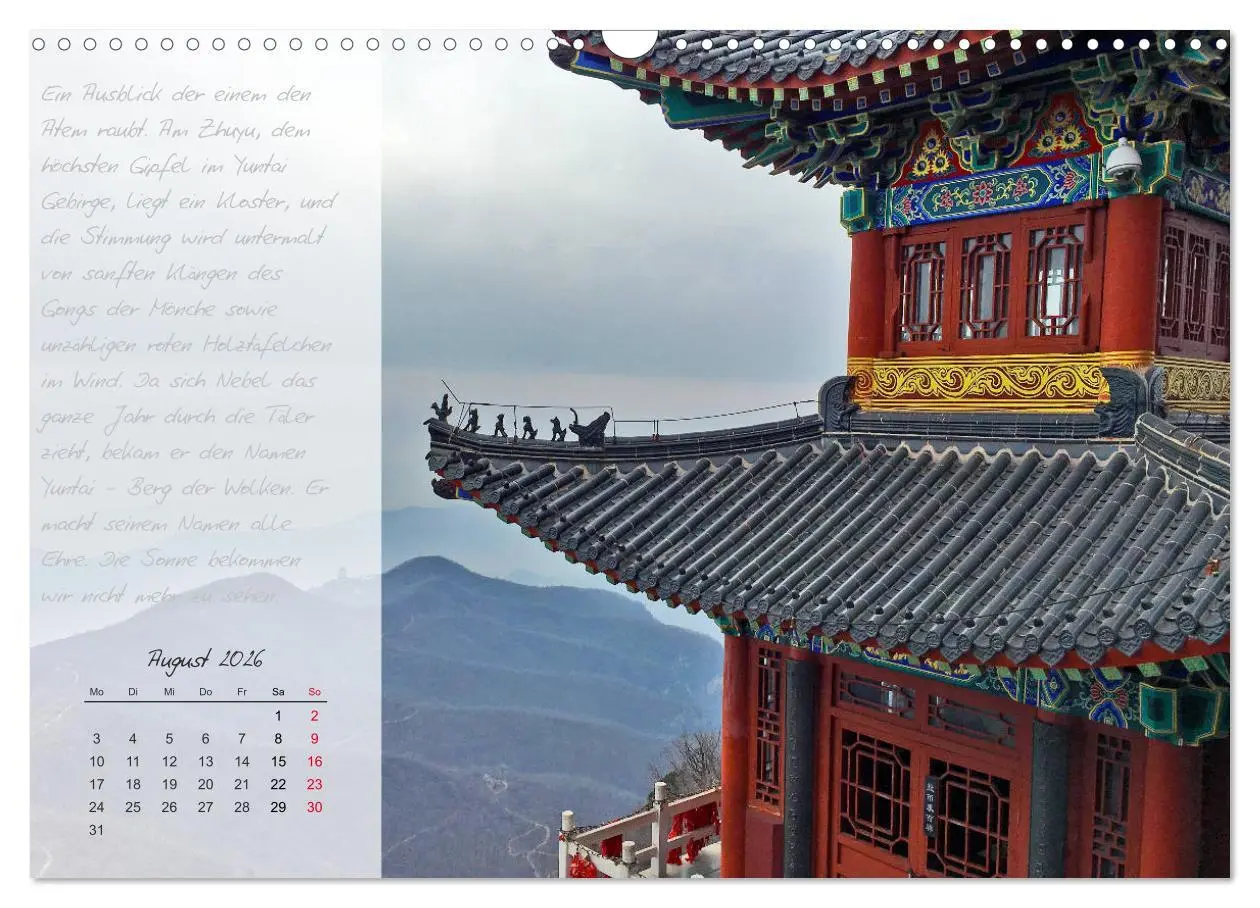 Ein Ausblick der einem den
Atem raubt. Am Zhuyu, dem
höchsten Gipfel im Yuntai
Gebirge, liegt ein Kloster, und
die Stimmung wird untermalt
von sanften Klängen des
Gongs der Mönche sowie
unzähligen roten Holztäfelchen
im Wind. Da sich Nebel das
ganze Jahr durch die Täler
zieht, bekam er den Namen
Yuntai - Berg der Wolken. Er
macht seinem Namen alle
Ehre. Die Sonne bekommen
wir nicht mehr zu sehen.
August 2026
Mo Di Mi Do Fr Sa So
1 2
3 4 5 6 7 8 9
10 11 12 13 14 15 16
17 18 19 20 21 22 23
24 25 26 27 28 29 30
31